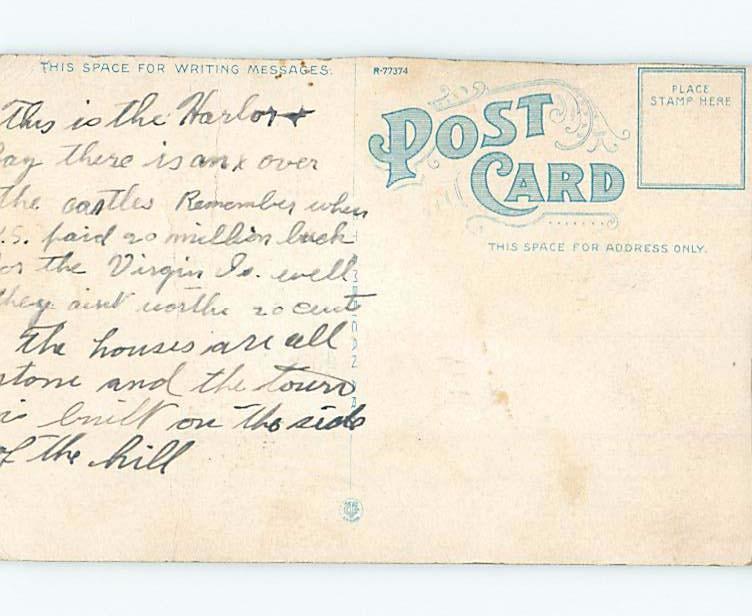 THIS SPACE FOR WRITING MESSAGES.
This is the Harbor &
ay there is an x over
the castles Remember when
.S. paid 20 million buck
or the Virgin Is. well
they aint worthe 20 cent
The houses are all
stone and the town
is built on the side
of the hill
R-77374
POST
CARD
PLACE
STAMP HERE
THIS SPACE FOR ADDRESS ONLY.